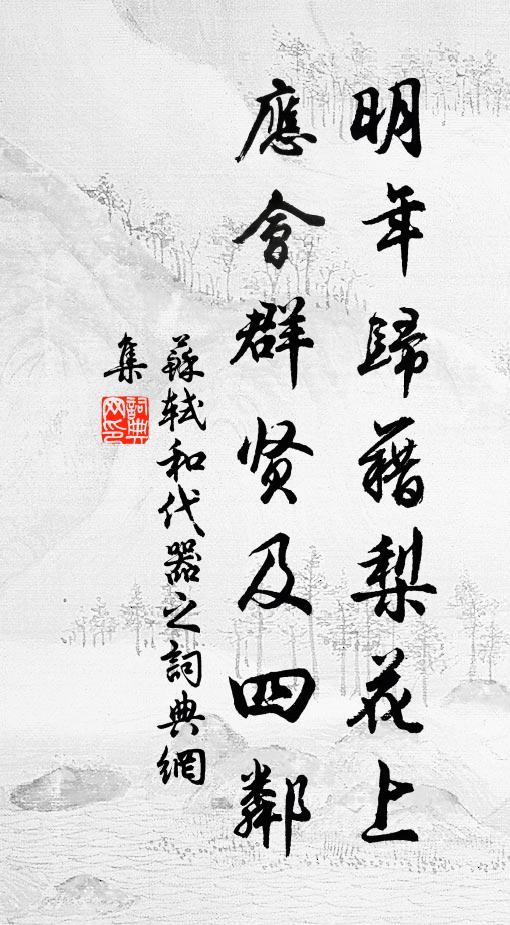 明年歸藉梨花上
應會群贤及四鄰
蘇軾和代器之詞典網
集
詞典
网印